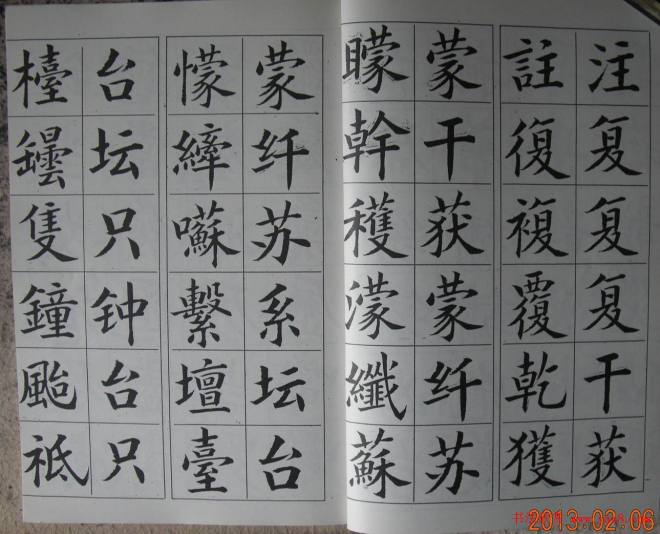 註注
復复
複复
覆复
乾干
獲获
矇蒙
幹干
穫获
濛蒙
纖纤
蘇苏
懞蒙
縴纤
囌苏
繫系
壇坛
臺台
檯台
罎坛
隻只
鐘钟
颱台
祗只
2013-02-06